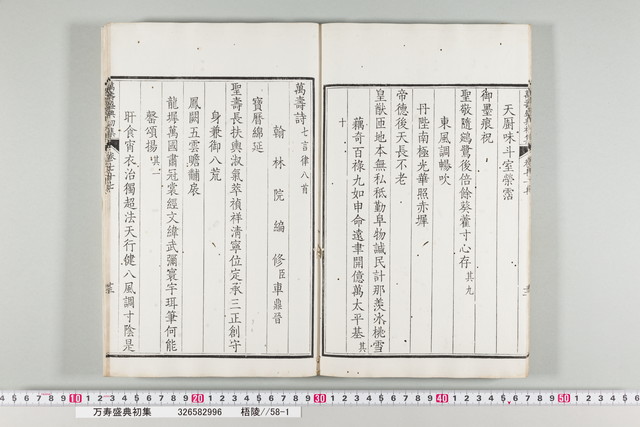 天厨味斗室縈霑
御墨痕祝
聖敬隨鵷鷺後倍餘葵藿寸心存其九
東風調暢吹
丹陛南極光華照赤墀
帝德後天長不老
皇猷匝地本無私秪勤阜物誠民計那羨冰桃雪
藕奇百祿九如申命遠聿開億萬太平基其
十
萬壽詩七言律八首
翰林院編修臣車鼎晉
寶曆綿延
聖壽長扶輿淑氣萃禎祥清寧位定承三正創守
身兼御八荒
鳳闕五雲瞻黼扆
龍墀萬國肅冠裳經文緯武彌寰宇珥筆何能
罄頌揚其一
旰食宵衣治獨超法天行健八風調寸陰是
10 20 30 40 50
万寿盛典初集 326582996 梧陵//58-1